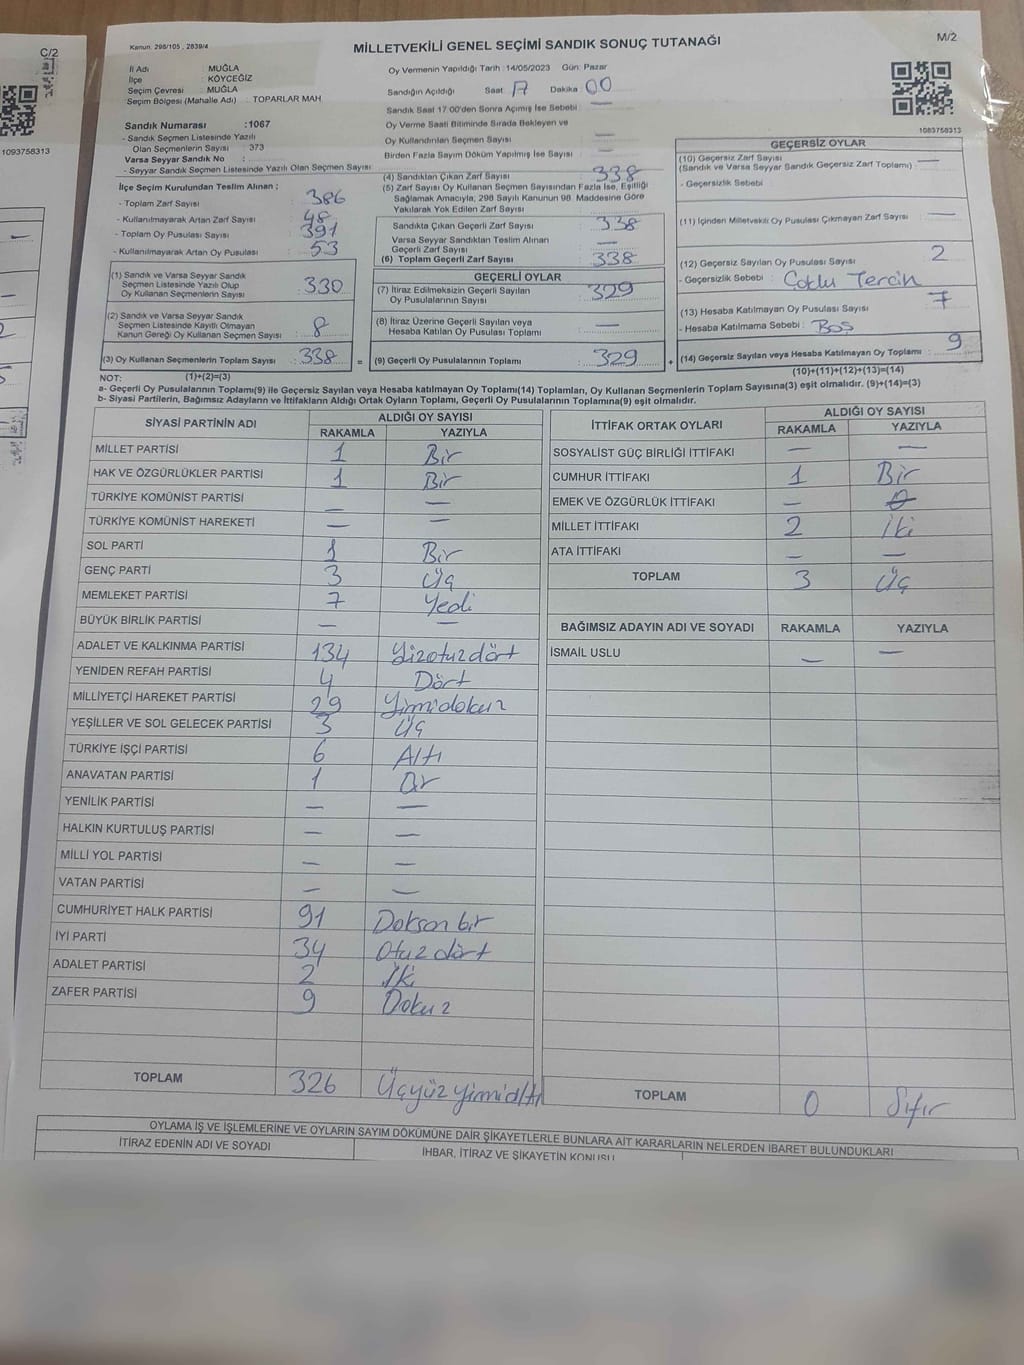 C/2
1093758313
Kanun: 298/105 , 2839/4
MİLLETVEKİLİ GENEL SEÇİMİ SANDIK SONUÇ TUTANAĞI
M/2
İl Adı : MUĞLA
İlçe : KÖYCEĞİZ
Seçim Çevresi : MUĞLA
Seçim Bölgesi (Mahalle Adı) : TOPARLAR MAH
Sandık Numarası :1067
- Sandık Seçmen Listesinde Yazılı
Olan Seçmenlerin Sayısı : 373
Varsa Seyyar Sandık No :
- Seyyar Sandık Seçmen Listesinde Yazılı Olan Seçmen Sayısı
İlçe Seçim Kurulundan Teslim Alınan ;
- Toplam Zarf Sayısı : 386
- Kullanılmayarak Artan Zarf Sayısı : 48
- Toplam Oy Pusulası Sayısı : 391
- Kullanılmayarak Artan Oy Pusulası : 53
(1) Sandık ve Varsa Seyyar Sandık
Seçmen Listesinde Yazılı Olup
Oy Kullanan Seçmenlerin Sayısı : 330
(2) Sandık ve Varsa Seyyar Sandık
Seçmen Listesinde Kayıtlı Olmayan
Kanun Gereği Oy Kullanan Seçmen Sayısı : 8
(3) Oy Kullanan Seçmenlerin Toplam Sayısı : 338
(1)+(2)=(3)
Oy Vermenin Yapıldığı Tarih :14/05/2023 Gün: Pazar
Sandığın Açıldığı Saat: 17 Dakika: 00
Sandık Saat 17.00'den Sonra Açılmış İse Sebebi : —
Oy Verme Saati Bitiminde Sırada Bekleyen ve
Oy Kullandırılan Seçmen Sayısı : —
Birden Fazla Sayım Döküm Yapılmış İse Sayısı : —
(4) Sandıktan Çıkan Zarf Sayısı : 338
(5) Zarf Sayısı Oy Kullanan Seçmen Sayısından Fazla İse, Eşitliği
Sağlamak Amacıyla, 298 Sayılı Kanunun 98. Maddesine Göre
Yakılarak Yok Edilen Zarf Sayısı :
Sandıkta Çıkan Geçerli Zarf Sayısı : 338
Varsa Seyyar Sandıktan Teslim Alınan
Geçerli Zarf Sayısı : —
(6) Toplam Geçerli Zarf Sayısı : 338
GEÇERLİ OYLAR
(7) İtiraz Edilmeksizin Geçerli Sayılan
Oy Pusulalarının Sayısı : 329
(8) İtiraz Üzerine Geçerli Sayılan veya
Hesaba Katılan Oy Pusulası Toplamı : —
= (9) Geçerli Oy Pusulalarının Toplamı : 329 +
1083758313
GEÇERSİZ OYLAR
(10) Geçersiz Zarf Sayısı
(Sandık ve Varsa Seyyar Sandık Geçersiz Zarf Toplamı) : —
- Geçersizlik Sebebi :
(11) İçinden Milletvekili Oy Pusulası Çıkmayan Zarf Sayısı : —
(12) Geçersiz Sayılan Oy Pusulası Sayısı : 2
- Geçersizlik Sebebi : Çoklu Tercih
(13) Hesaba Katılmayan Oy Pusulası Sayısı : 7
- Hesaba Katılmama Sebebi : Boş
(14) Geçersiz Sayılan veya Hesaba Katılmayan Oy Toplamı : 9
(10)+(11)+(12)+(13)=(14)
NOT:
a- Geçerli Oy Pusulalarının Toplamı(9) ile Geçersiz Sayılan veya Hesaba katılmayan Oy Toplamı(14) Toplamları, Oy Kullanan Seçmenlerin Toplam Sayısına(3) eşit olmalıdır. (9)+(14)=(3)
b- Siyasi Partilerin, Bağımsız Adayların ve İttifakların Aldığı Ortak Oyların Toplamı, Geçerli Oy Pusulalarının Toplamına(9) eşit olmalıdır.
SİYASİ PARTİNİN ADI ALDIĞI OY SAYISI
RAKAMLA YAZIYLA
MİLLET PARTİSİ 1 Bir
HAK VE ÖZGÜRLÜKLER PARTİSİ 1 Bir
TÜRKİYE KOMÜNİST PARTİSİ — —
TÜRKİYE KOMÜNİST HAREKETİ — —
SOL PARTİ 1 Bir
GENÇ PARTİ 3 Üç
MEMLEKET PARTİSİ 7 Yedi
BÜYÜK BİRLİK PARTİSİ — —
ADALET VE KALKINMA PARTİSİ 134 Yüzotuzdört
YENİDEN REFAH PARTİSİ 4 Dört
MİLLİYETÇİ HAREKET PARTİSİ 29 Yirmidokuz
YEŞİLLER VE SOL GELECEK PARTİSİ 3 Üç
TÜRKİYE İŞÇİ PARTİSİ 6 Altı
ANAVATAN PARTİSİ 1 Bir
YENİLİK PARTİSİ — —
HALKIN KURTULUŞ PARTİSİ — —
MİLLİ YOL PARTİSİ — —
VATAN PARTİSİ — —
CUMHURİYET HALK PARTİSİ 91 Doksan bir
İYİ PARTİ 34 Otuz dört
ADALET PARTİSİ 2 İki
ZAFER PARTİSİ 9 Dokuz
TOPLAM 326 Üçyüz yirmialtı
İTTİFAK ORTAK OYLARI ALDIĞI OY SAYISI
RAKAMLA YAZIYLA
SOSYALİST GÜÇ BİRLİĞİ İTTİFAKI — —
CUMHUR İTTİFAKI 1 Bir
EMEK VE ÖZGÜRLÜK İTTİFAKI —
MİLLET İTTİFAKI 2 İki
ATA İTTİFAKI — —
TOPLAM 3 Üç
BAĞIMSIZ ADAYIN ADI VE SOYADI RAKAMLA YAZIYLA
İSMAİL USLU — —
TOPLAM 0 Sıfır
OYLAMA İŞ VE İŞLEMLERİNE VE OYLARIN SAYIM DÖKÜMÜNE DAİR ŞİKAYETLERLE BUNLARA AİT KARARLARIN NELERDEN İBARET BULUNDUKLARI
İTİRAZ EDENİN ADI VE SOYADI
İHBAR, İTİRAZ VE ŞİKAYETİN KONUSU